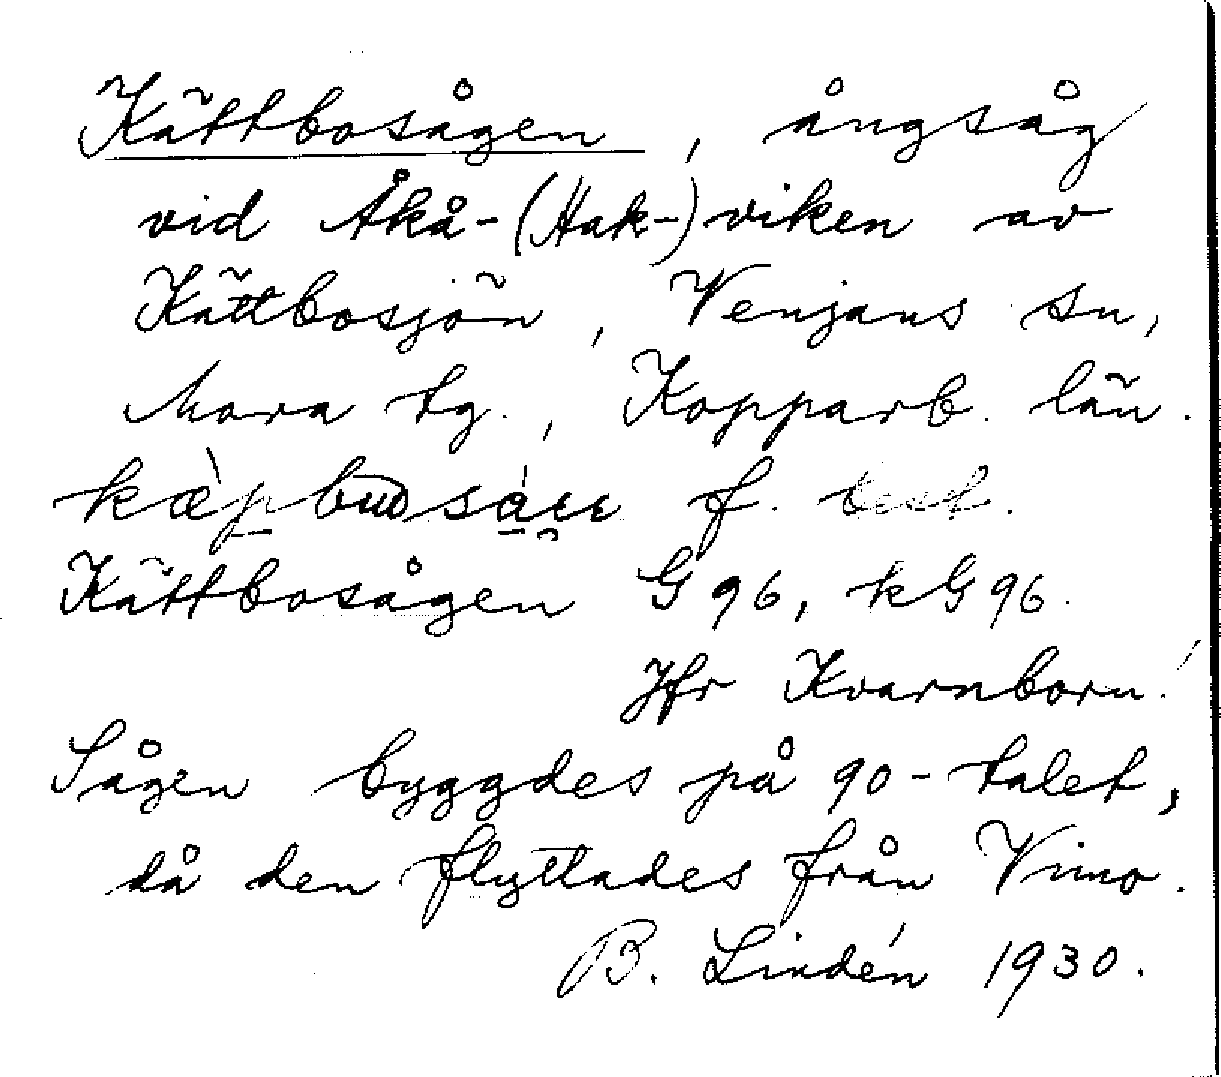 Kättbosågen, ångsåg
vid Åkå-(Hak-)viken av
Kättbosjön, Venjans sn,
Mora tg., Kopparb. län.
f. best.
Kättbosågen G 96, kG 96.
Jfr Kvarnborn!
Sågen byggdes på 90-talet,
då den flyttades från Vimo.
B. Lindén 1930.